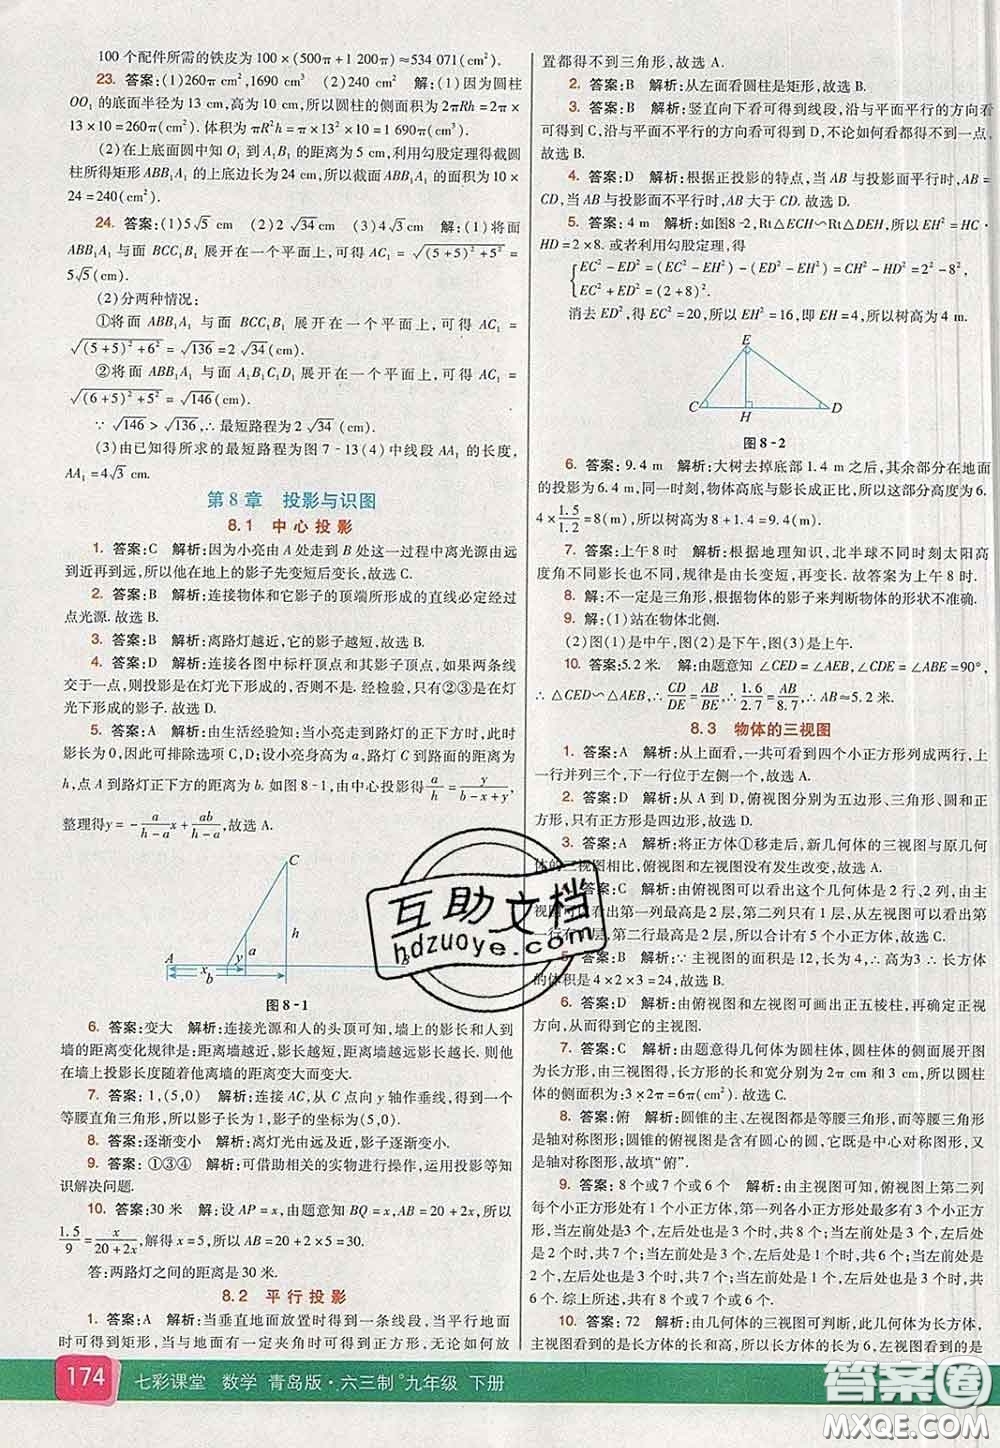 100 个配件所需的铁皮为 100×(500π+1 200π)≈534 071(cm²).
23. 答案:(1)260π cm²,1690 cm³ (2)240 cm² 解:(1)因为圆柱
OO₁ 的底面半径为 13 cm,高为 10 cm,所以圆柱的侧面积为 2πRh=2π×
13×10=260π(cm²).体积为 πR²h=π×13²×10=1 690π(cm³).
(2)在上底面圆中知 O₁ 到 A₁B₁ 的距离为 5 cm,利用勾股定理得截圆
柱所得矩形 ABB₁A₁ 的上底边长为 24 cm,所以矩形 ABB₁A₁ 的面积为 10×
24=240(cm²).
24. 答案:(1)5√5 cm (2)2√34 cm (3)4√3 cm 解:(1)将面
ABB₁A₁ 与面 BCC₁B₁ 展开在一个平面上,可得 AC₁=√((5+5)²+5²)=
5√5(cm).
(2)分两种情况:
①将面 ABB₁A₁ 与面 BCC₁B₁ 展开在一个平面上,可得 AC₁=
√((5+5)²+6²)=√136=2√34(cm).
②将面 ABB₁A₁ 与面 A₁B₁C₁D₁ 展开在一个平面上,可得 AC₁=
√((6+5)²+5²)=√146(cm).
∵√146>√136,∴最短路程为 2√34(cm).
(3)由已知得所求的最短路程为图 7-13(4)中线段 AA₁ 的长度,
AA₁=4√3(cm).
第 8 章 投影与识图
8.1 中心投影
1. 答案:C 解析:因为小亮由 A 处走到 B 处这一过程中离光源由远
到近再到远,所以他在地上的影子先变短后变长,故选 C.
2. 答案:B 解析:连接物体和它影子的顶端所形成的直线必定经过
点光源.故选 B.
3. 答案:B 解析:离路灯越近,它的影子越短,故选 B.
4. 答案:D 解析:连接各图中标杆顶点和其影子顶点,如果两条线
交于一点,则投影是在灯光下形成的,否则不是.经检验,只有②③是在灯
光下形成的影子.故选 D.
5. 答案:A 解析:由生活经验知:当小亮走到路灯的正下方时,此时
影长为 0,因此可排除选项 C、D;设小亮身高为 a,路灯 C 到路面的距离为
h,点 A 到路灯正下方的距离为 b.如图 8-1,由中心投影得 a/h=y/(b-x+y),
整理得 y=-a/(h-a)x+ab/(h-a),故选 A.
C
h
a
A
x
y
b
图 8-1
6. 答案:变大 解析:连接光源和人的头顶可知,墙上的影长和人到
墙的距离变化规律是:距离墙越近,影长越短,距离墙越远,影长越长.则他
在墙上投影长度随着他离墙的距离变大而变大.
7. 答案:1,(5,0) 解析:连接 AC,从点 C 向 y 轴作垂线,得到一个
等腰直角三角形,所以影子长为 1,影子的坐标为(5,0).
8. 答案:逐渐变小 解析:离灯光由远及近,影子则逐渐变小.
9. 答案:①③④ 解析:可借助相关的实物进行操作,运用投影等知
识解决问题.
10. 答案:30 米 解:设 AP=x,由题意知 BQ=x,AB=20+2x,所以
1.5/9=x/(20+2x),解得 x=5,所以 AB=20+2×5=30.
答:两路灯之间的距离是 30 米.
8.2 平行投影
1. 答案:A 解析:当垂直地面放置时得到一条线段,当平行于地面
时可得到矩形,当与地面有一定夹角时可得到正方形,无论如何放
置都得不到三角形,故选 A.
2. 答案:B 解析:从左面看圆柱是矩形,故选 B.
3. 答案:B 解析:竖直向下看可得到线段,沿与平面平行的方向看
可得到 C,沿与平面不平行的方向看可得到 D,不论如何看都得不到一点,
故选 B.
4. 答案:D 解析:根据正投影的特点,当 AB 与投影面平行时,AB=
CD,当 AB 与投影面不平行时,AB 大于 CD.故选 D.
5. 答案:4 m 解析:如图8-2,Rt△ECH∽Rt△DEH,所以EH²=HC·
HD=2×8.或者利用勾股定理,得
EC²-ED²=(CH²+EH²)-(DH²+EH²)=CH²-HD²=2²-8²,
EC²+ED²=(2+8)².
消去 ED²,得 EC²=20,所以 EH²=16,即 EH=4,所以树高为 4 m.
E
C
H
D
图 8-2
6. 答案:9.4 m 解析:大树去掉底部 1.4 m 之后,其余部分在地面
的投影为 6.4 m,同一时刻,物体高与影长成正比,所以此部分高度为 6.
4×1.5/1.2=8(m),所以树高为 8+1.4=9.4(m).
7. 答案:上午8时 解析:根据地理知识,北半球不同时刻太阳高
度角不同影长也不同,规律是由长变短,再变长.故答案为上午 8 时.
8. 解:不一定是三角形,根据物体的影子来判断物体的形状不准确.
9. 解:(1)站在物体北侧.
(2)图(1)是中午,图(2)是下午,图(3)是上午.
10. 答案:5.2 米 解:由题意知 ∠CED=∠AEB,∠CDE=∠ABE=90°,
∴△CED∽△AEB,∴CD/DE=AB/BE,∴1.6/2.7=AB/8.7,∴AB≈5.2 米.
8.3 物体的三视图
1. 答案:A 解析:从上面看,一共可看到四个小正方形列成两行,上
一行并列三个,下一行位于左侧一个,故选 A.
2. 答案:D 解析:从 A 到 D,俯视图分别为五边形、三角形、圆和正
方形,只有正方形是四边形,故选 D.
3. 答案:A 解析:将正方体①移走后,新几何体的三视图与原几何
体的三视图相比,俯视图和左视图没有发生改变,故选 A.
答案:C 解析:由俯视图可以看出这个几何体是 2 行、2 列,由主
视图可以看出第一列最高是 2 层,第二列只有 1 层,从左视图可以看出第
一行只有一层,第二行最高是 2 层,所以合计有 5 个小正方体,故选 C.
5. 答案:B 解析:∵主视图的面积是 12,长为 4,∴高为 3,∴长方体
的体积是 4×2×3=24,故选 B.
6. 答案:D 解析:由俯视图和左视图可画出正五棱柱,再确定正视
方向,就可以得到它的主视图.
7. 答案:C 解析:由题意得几何体为圆柱体,圆柱体的侧面展开图
为长方形,由三视图可得,长方形的长为圆柱体的底面周长,宽为 3,所以
侧面积为:2π×3=6π(cm²),故选 C.
8. 答案:俯 解析:圆锥的主、左视图都是等腰三角形,而等腰三角形
是轴对称图形;圆锥的俯视图是含有圆心的圆,它既是中心对称图形,又
是轴对称图形,故填“俯”.
9. 答案:8 个或 7 个或 6 个 解析:由主视图可知,俯视图上第二列
每个小正方形上只有一个小立方块,第一列每个小正方形处最多有 3 个小
立方块,当左前处是 3 个,左后处也是 3 个时,共 8 个;当左前处是 3 个,左
后处是 2 个时,共 7 个;当左前处是 3 个,左后处是 1 个时,共 6 个;当左前
处是 2 个,左后处是 3 个时,共 7 个;当左前处是 1 个,左后处也是 3 个时,
共 6 个.综上所述,共 8 个或 7 个或 6 个.
10. 答案:72 解析:由三视图可判断,此几何体为长方体,
主视图看到的是长方体的长和高,所以长方体的长为6,左视图看到的是
174
七彩课堂 数学 青岛版·六三制 九年级 下册
互助文档
hdzuoye.com
答案圈
MXQE.COM